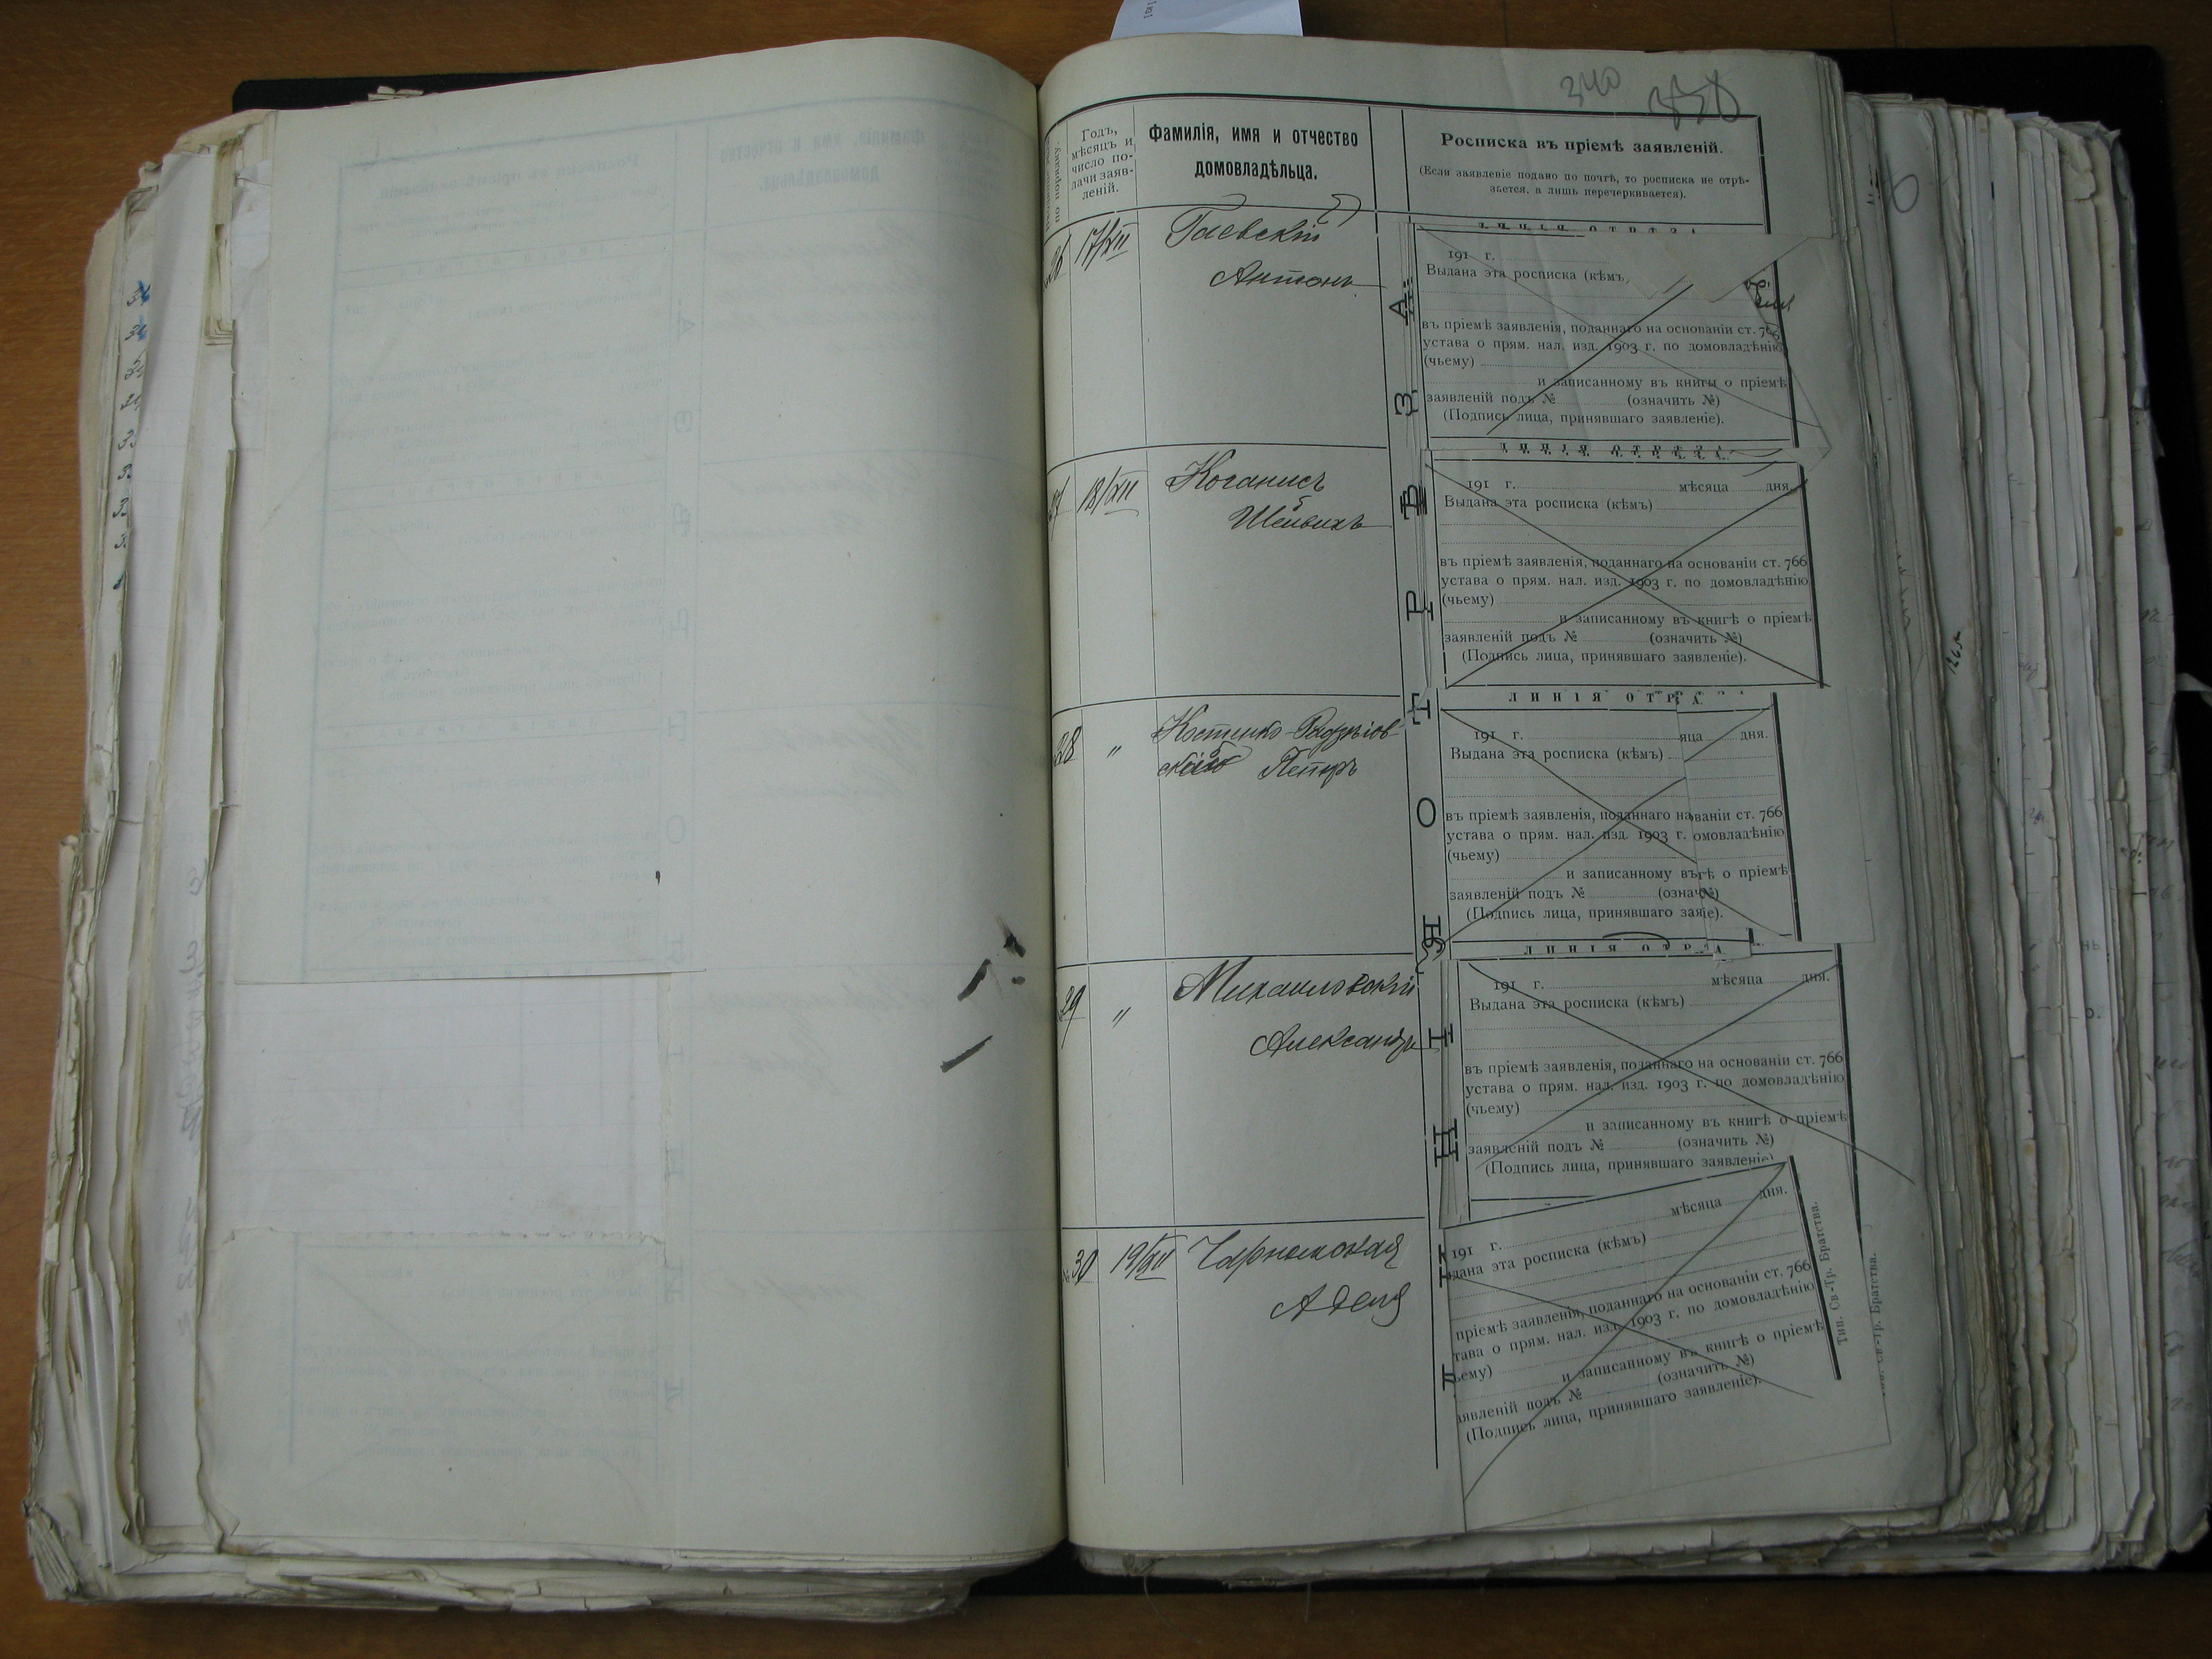 340
Годъ,
мѣсяцъ и
число по-
дачи заяв-
леній.
Фамилія, имя и отчество
домовладѣльца.
Росписка въ пріемѣ заявленій.
(Если заявленіе подано по почтѣ, то росписка не отрѣ-
зается, а лишь перечеркивается).
26 17/XII Гаевскій
Антонъ
ЛИНІЯ ОТРѢЗА
191 г.
Выдана эта росписка (кѣмъ,
въ пріемѣ заявленія, поданнаго на основаніи ст. 766
устава о прям. нал. изд. 1903 г. по домовладѣнію
(чьему)
и записанному въ книгы о пріемѣ
заявленій подъ № (означить №)
(Подпись лица, принявшаго заявленіе).
ЛИНІЯ ОТРѢЗА
27 18/XII Коганисъ
191 г. мѣсяца дня.
Выдана эта росписка (кѣмъ)
въ пріемѣ заявленія, поданнаго на основаніи ст. 766
устава о прям. нал. изд. 1903 г. по домовладѣнію
(чьему)
и записанному въ книгѣ о пріемѣ
заявленій подъ № (означить №)
(Подпись лица, принявшаго заявленіе).
ЛИНІЯ ОТРѢ
28 " Костенко-
Петръ
191 г. яца дня.
Выдана эта росписка (кѣмъ)
въ пріемѣ заявленія, поданнаго наваніи ст. 766
устава о прям. нал. изд. 1903 г. омовладѣнію
(чьему)
и записанному въгѣ о пріемѣ
заявленій подъ № (означ№)
(Подпись лица, принявшаго заяіе).
ЛИНІЯ ОТРѢ
29 " Михайловскій
Александръ
191 г. мѣсяца дня.
Выдана эта росписка (кѣмъ)
въ пріемѣ заявленія, поданнаго на основаніи ст. 766
устава о прям. нал. изд. 1903 г. по домовладѣнію
(чьему)
и записанному въ книгѣ о пріемѣ
заявленій подъ № (означить №)
(Подпись лица, принявшаго заявленіе)
№ 30 19/XII
Аделя
191 г. мѣсяца дня.
дана эта росписка (кѣмъ)
пріемѣ заявленія, поданнаго на основаніи ст. 766
тава о прям. нал. изд. 1903 г. по домовладѣнію
ьему)
и записанному въ книгѣ о пріемѣ
аявленій подъ № (означить №)
(Подпись лица, принявшаго заявленіе).
Тип. Св.-Тр. Братства.
Св.-Тр. Братства.